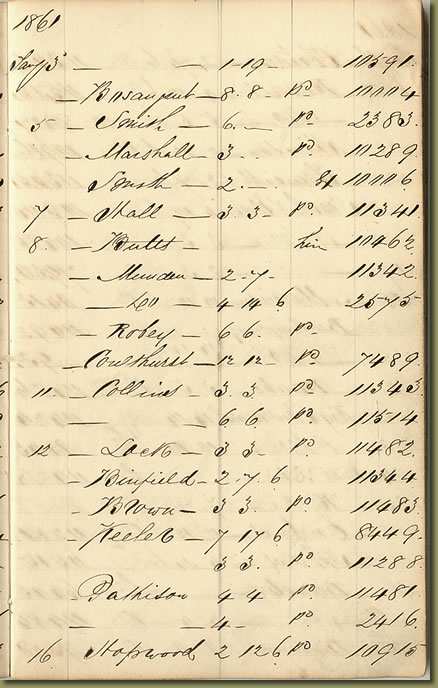 1861
Jany 3 — — 1-19- 10591.
— Bosanquet — 8. 8- pd 10004
5 — Smith — 6. — pd 2383.
— Marshall — 3 . . pd 11289.
Smith — 2. — . 10006
7 — Hall — 3 3- pd. 11341
8. — Butts — 10462.
— Munden — 2-7- 11342.
— Do — 4 14 6 2575
— Robey — 6 6. pd
— Coulthurst — 12 12- pd 7489.
11 — Collins — 3. 3. pd 11343.
— — 6. 6. pd 11514
12 — Lock — 3 3- pd. 11482.
— Binfield — 2. 7. 6 11344
— Brown — 3 3. pd. 11483.
— Keeler — 7 17 6 8449.
3 3. pd 11288
— Pattison 4 4 pd. 11481
— — 4- pd 2416.
16 — Hopwood 2 12 6 pd 10915